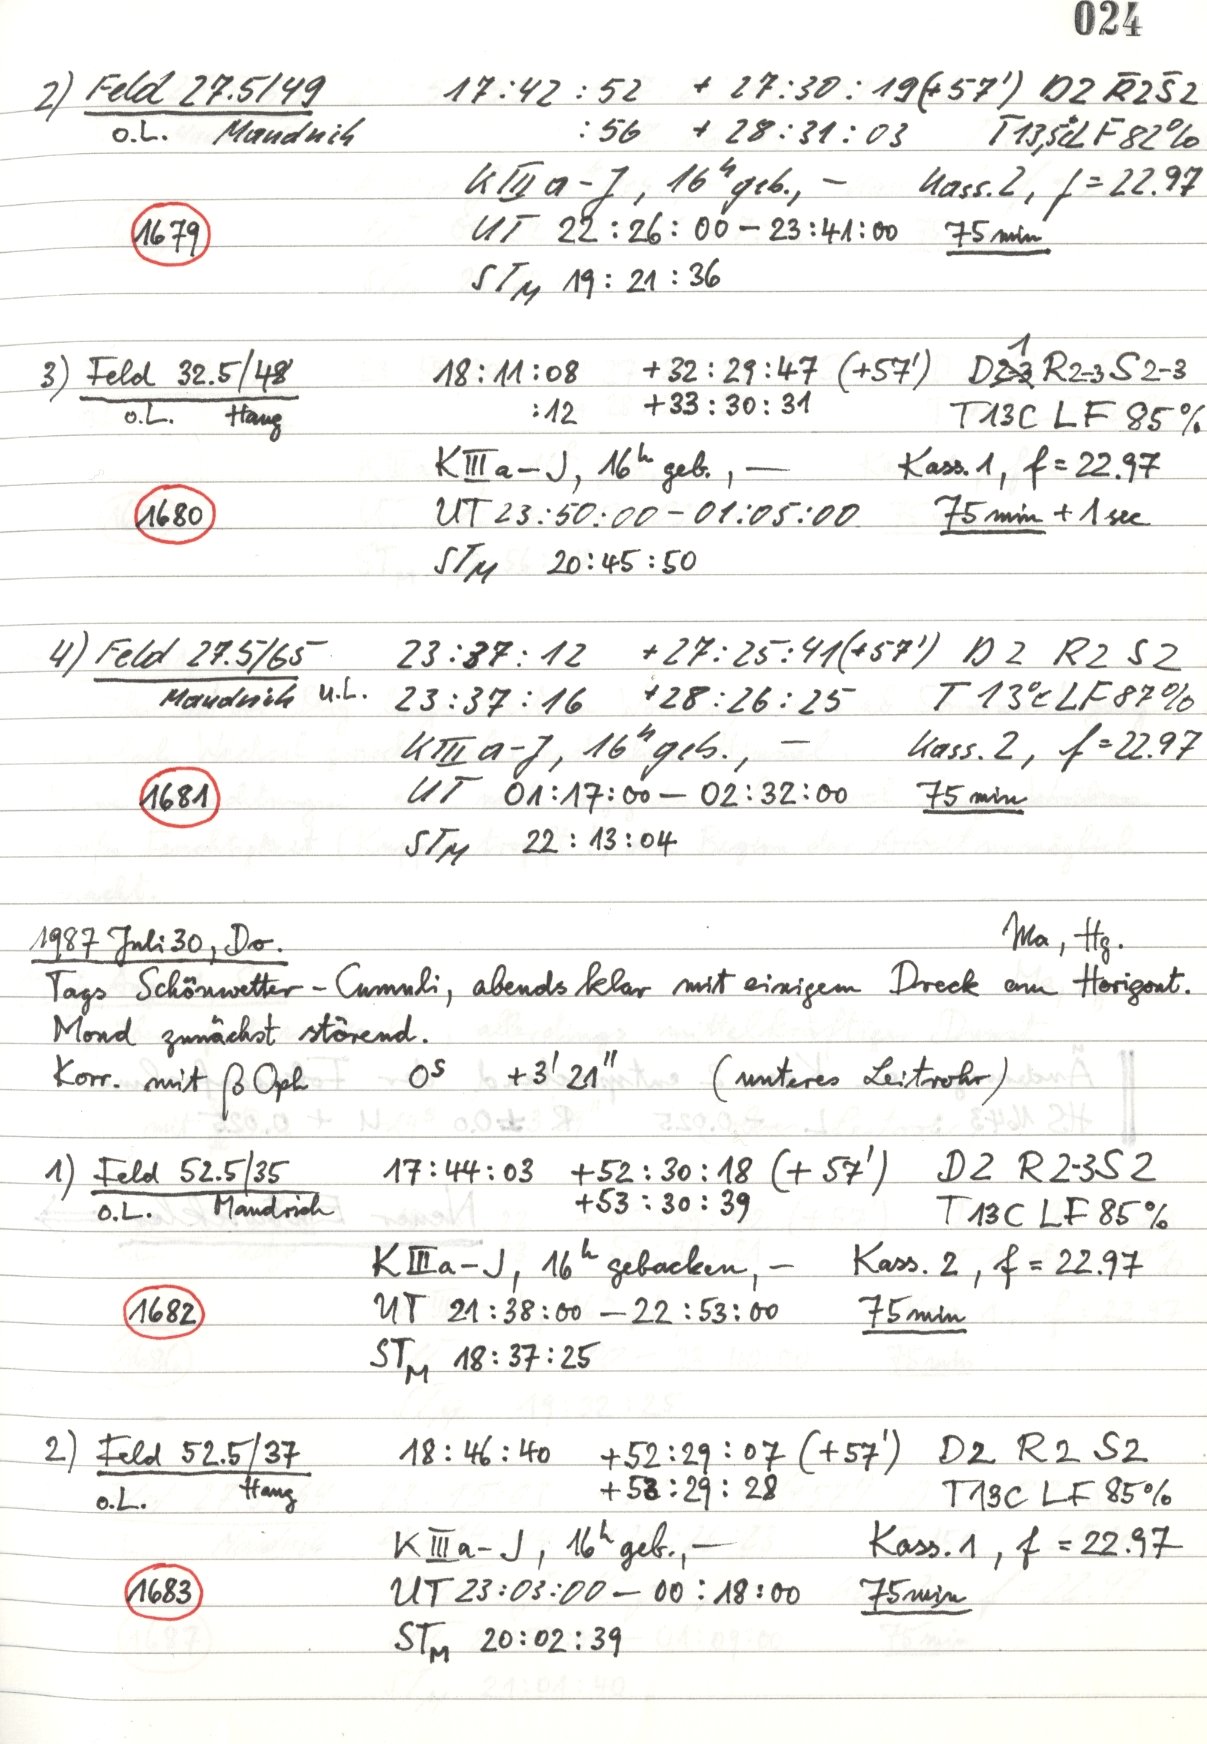 024
2) Feld 27.5/49 17:42:52 + 27:30:19(+57') D2 R̄2 S̄2
o.L. Mandrich :56 + 28:31:03 T13,5C LF 82%
KIIIa-J, 16ʰ geb., – Kass. 2, f = 22.97
1679 UT 22:26:00 – 23:41:00 75 min
STM 19:21:36
3) Feld 32.5/48 18:11:08 +32:29:47 (+57') D1 R2-3 S2-3
o.L. Haug :12 +33:30:31 T13C LF 85%
KIIIa-J, 16ʰ geb., — Kass. 1, f = 22.97
1680 UT 23:50:00 – 01:05:00 75 min + 1 sec
STM 20:45:50
4) Feld 27.5/65 23:37:12 +27:25:41(+57') D2 R2 S2
Mandrich u.L. 23:37:16 +28:26:25 T 13°C LF 87%
KIIIa-J, 16ʰ geb., – Kass. 2, f = 22.97
1681 UT 01:17:00 – 02:32:00 75 min
STM 22:13:04
1987 Juli 30, Do. Ma, Hg.
Tags Schönwetter-Cumuli, abends klar mit einigem Dreck am Horizont.
Mond zunächst störend.
Korr. mit β Oph 0ˢ +3' 21" (unteres Leitrohr)
1) Feld 52.5/35 17:44:03 +52:30:18 (+57') D2 R2-3 S2
o.L. Mandrich +53:30:39 T13C LF 85%
KIIIa-J, 16ʰ gebacken, – Kass. 2, f = 22.97
1682 UT 21:38:00 – 22:53:00 75 min
STM 18:37:25
2) Feld 52.5/37 18:46:40 +52:29:07 (+57') D2 R2 S2
o.L. Haug +53:29:28 T13C LF 85%
KIIIa-J, 16ʰ geb., — Kass. 1, f = 22.97
1683 UT 23:03:00 – 00:18:00 75 min
STM 20:02:39